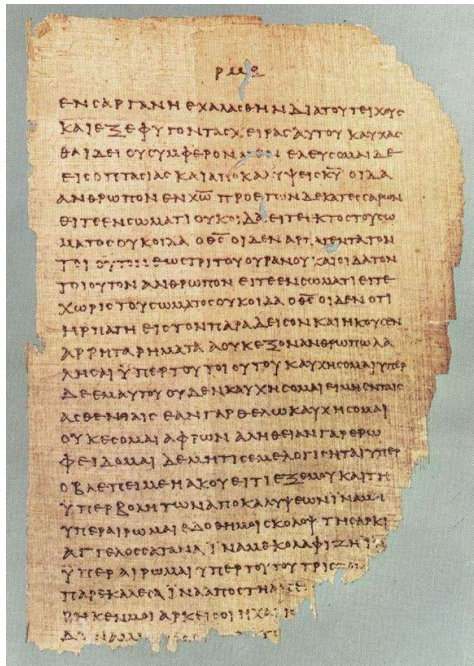 ρμθ
ΕΝ ΣΑΡΓΑΝΗ ΕΧΑΛΑΣΘΗΝ ΔΙΑ ΤΟΥ ΤΕΙΧΟΥΣ
ΚΑΙ ΕΞΕΦΥΓΟΝ ΤΑΣ ΧΕΙΡΑΣ ΑΥΤΟΥ ΚΑΥΧΑΣ
ΘΑΙ ΔΕΙ ΟΥ ΣΥΜΦΕΡΟΝ ΕΛΕΥΣΟΜΑΙ ΔΕ
ΕΙΣ ΟΠΤΑΣΙΑΣ ΚΑΙ ΑΠΟΚΑΛΥΨΕΙΣ ΚΥ ΟΙΔΑ
ΑΝΘΡΩΠΟΝ ΕΝ ΧΩ ΠΡΟ ΕΤΩΝ ΔΕΚΑΤΕΣΣΑΡΩΝ
ΕΙΤΕ ΕΝ ΣΩΜΑΤΙ ΟΥΚ ΟΙΔΑ ΕΙΤΕ ΕΚΤΟΣ ΤΟΥ ΣΩ
ΜΑΤΟΣ ΟΥΚ ΟΙΔΑ Ο ΘΣ ΟΙΔΕΝ ΑΡΠΑΓΕΝΤΑ ΤΟΝ
ΤΟΙΟΥΤΟΝ ΕΩΣ ΤΡΙΤΟΥ ΟΥΡΑΝΟΥ ΚΑΙ ΟΙΔΑ ΤΟΝ
ΤΟΙΟΥΤΟΝ ΑΝΘΡΩΠΟΝ ΕΙΤΕ ΕΝ ΣΩΜΑΤΙ ΕΙΤΕ
ΧΩΡΙΣ ΤΟΥ ΣΩΜΑΤΟΣ ΟΥΚ ΟΙΔΑ Ο ΘΣ ΟΙΔΕΝ ΟΤΙ
ΗΡΠΑΓΗ ΕΙΣ ΤΟΝ ΠΑΡΑΔΕΙΣΟΝ ΚΑΙ ΗΚΟΥΣΕΝ
ΑΡΡΗΤΑ ΡΗΜΑΤΑ Α ΟΥΚ ΕΞΟΝ ΑΝΘΡΩΠΩ ΛΑ
ΛΗΣΑΙ ΫΠΕΡ ΤΟΥ ΤΟΙΟΥΤΟΥ ΚΑΥΧΗΣΟΜΑΙ ΥΠΕΡ
ΔΕ ΕΜΑΥΤΟΥ ΟΥΔΕΝ ΚΑΥΧΗΣΟΜΑΙ ΕΙ ΜΗ ΕΝ ΤΑΙΣ
ΑΣΘΕΝΙΑΙΣ ΕΑΝ ΓΑΡ ΘΕΛΩ ΚΑΥΧΗΣΟΜΑΙ
ΟΥΚ ΕΣΟΜΑΙ ΑΦΡΩΝ ΑΛΗΘΕΙΑΝ ΓΑΡ ΕΡΩ
ΦΕΙΔΟΜΑΙ ΔΕ ΜΗ ΤΙΣ ΕΜΕ ΛΟΓΙΣΗΤΑΙ ΥΠΕΡ
Ο ΒΛΕΠΕΙ ΜΕ Η ΑΚΟΥΕΙ ΤΙ ΕΞ ΕΜΟΥ ΚΑΙ ΤΗ
ΫΠΕΡΒΟΛΗ ΤΩΝ ΑΠΟΚΑΛΥΨΕΩΝ ΪΝΑ ΜΗ
ΥΠΕΡΑΙΡΩΜΑΙ ΕΔΟΘΗ ΜΟΙ ΣΚΟΛΟΨ ΤΗ ΣΑΡΚΙ
ΑΓΓΕΛΟΣ ΣΑΤΑΝΑ ΪΝΑ ΜΕ ΚΟΛΑΦΙΖΗ ΪΝΑ
ΫΠΕΡΑΙΡΩΜΑΙ ΥΠΕΡ ΤΟΥΤΟΥ ΤΡΙΣ
ΠΑΡΕΚΑΛΕΣΑ ΪΝΑ ΑΠΟΣΤΗ
ΡΗΚΕΝ ΜΟΙ ΑΡΚΕΙ ΣΟΙ Η ΧΑΡΙΣ
ΔΥΝΑΜΙΣ